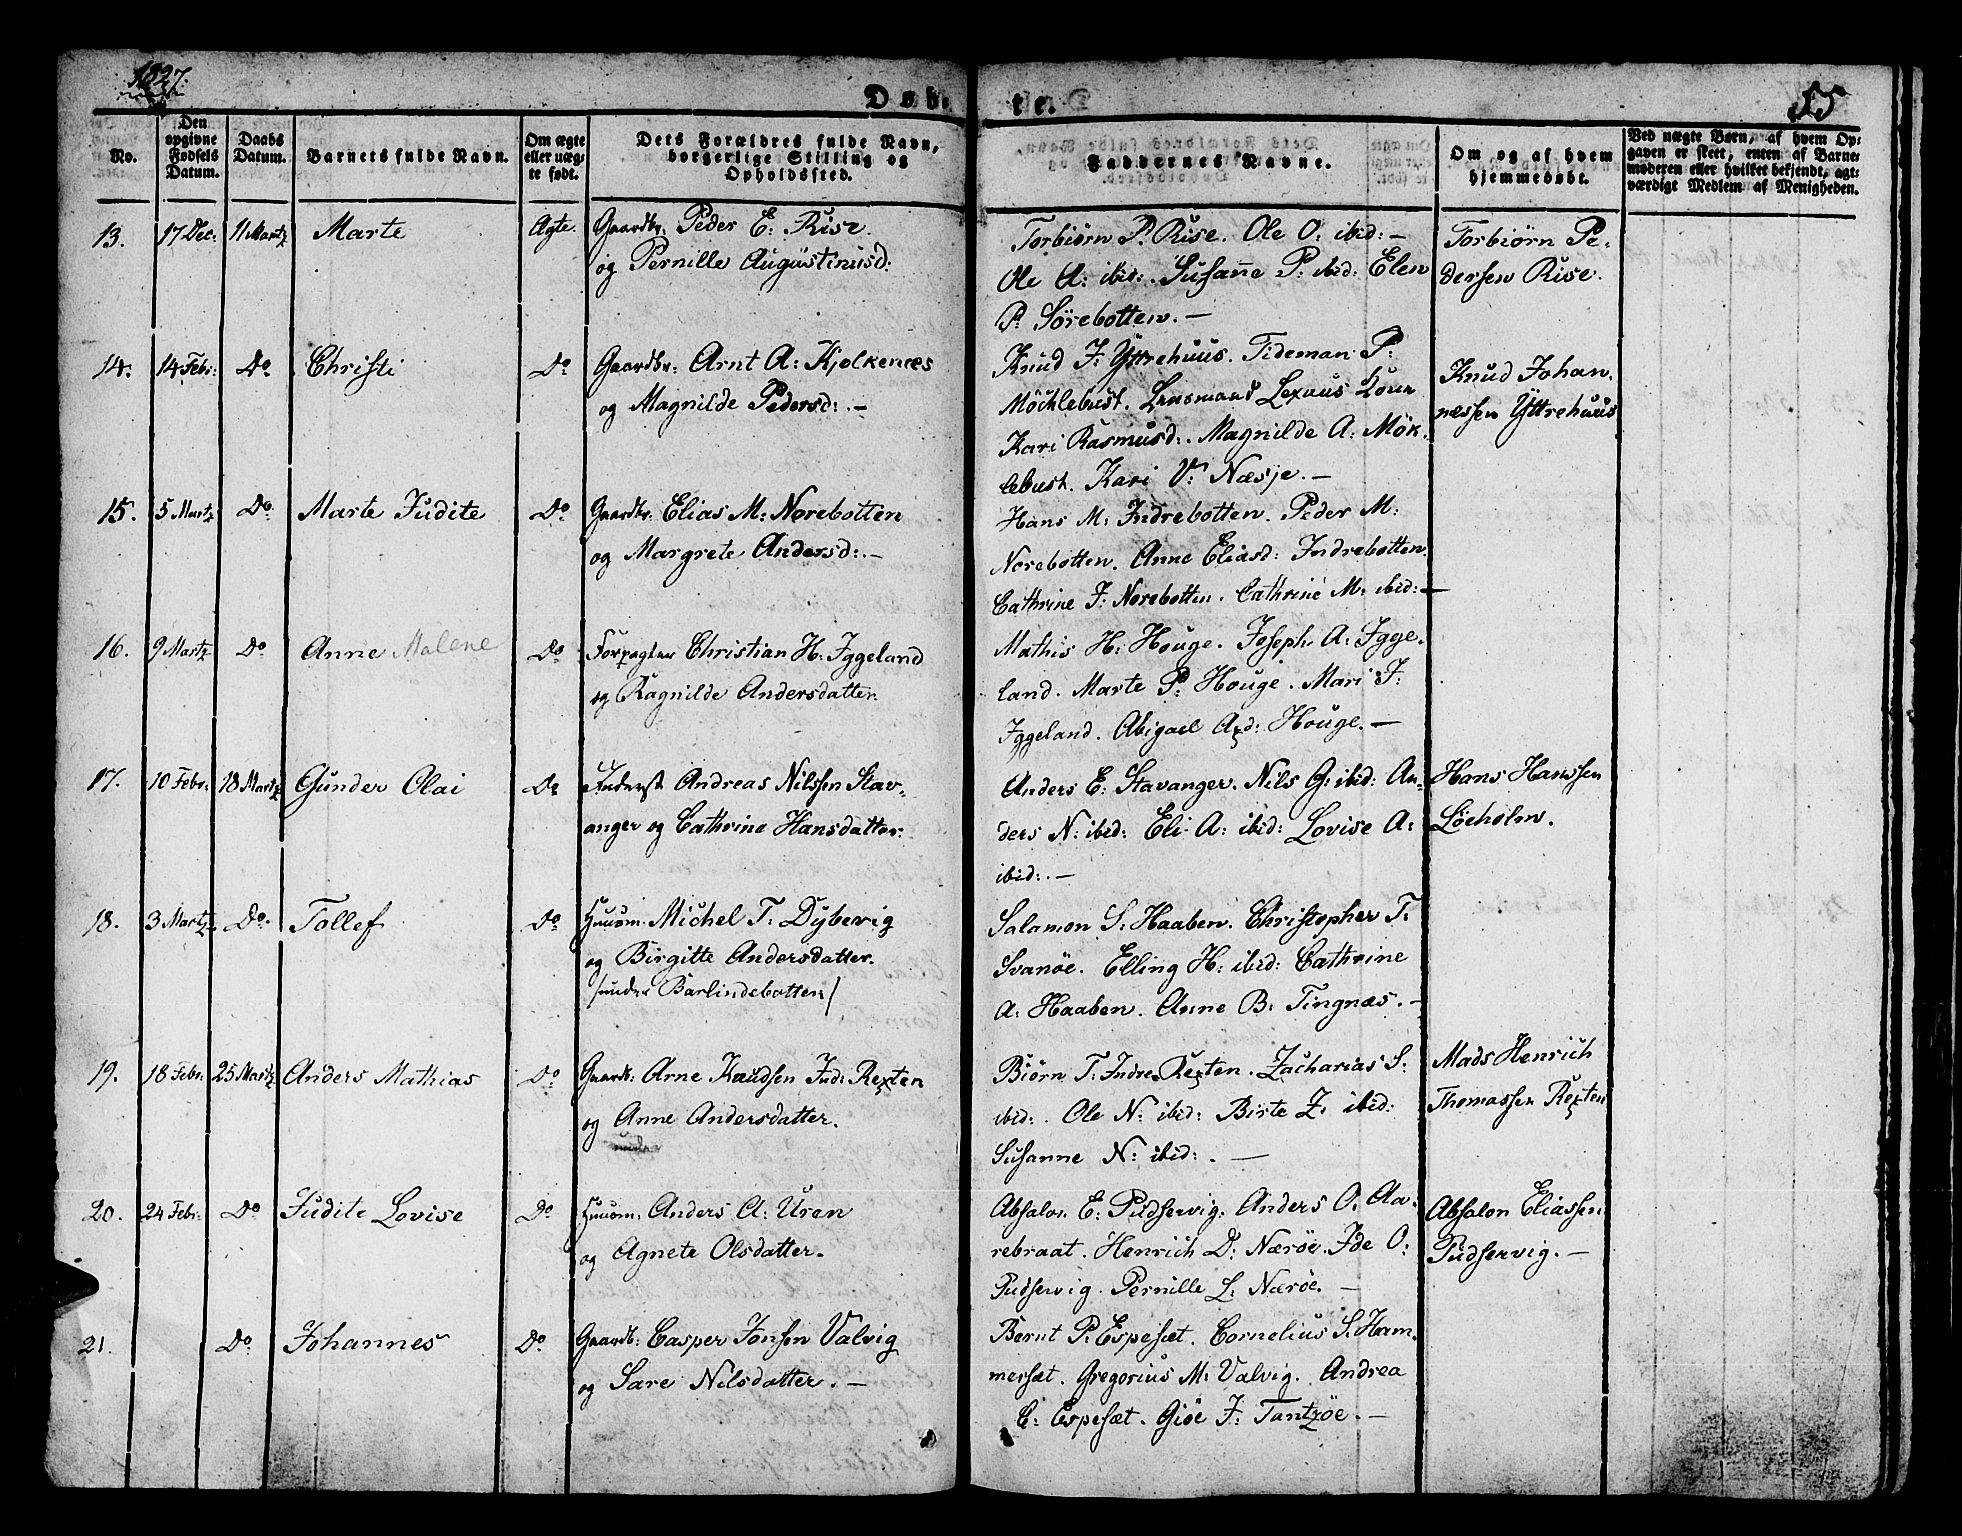 1827.
Døb-
te.
55
No.
Den
opgivne
Fødsels
Datum.
Daabs
Datum.
Barnets fulde Navn.
Om ægte
eller uæg-
te født.
Dets Forældres fulde Navn,
borgerlige Stilling og
Opholdssted.
Faddernes Navne.
Om og af hvem
hjemmedøbt.
Ved uægte Børn, af hvem Op-
gaven er skeet, enten af Barne-
moderen eller hvilket bekjendt, agt-
værdigt Medlem af Menigheden.
13. 17 Dec: 11 Martz Marte Ægte. Gaardbr. Peder E: Rise
og Pernille Augustinusd:
Torbiørn P. Rise. Ole O: ibid: —
Ole A: ibid: Susanne P: ibid: Elen
P: Sörebotten. —
Torbiörn Pe-
dersen Rise.
14. 14 Febr: Do Christi Do Gaardbr: Arnt A: Kjolkenæs
og Magnilde Pedersd: —
Knud J: Yttrehuus. Tideman P:
Möcklebust. Lensmand Lexaus Kone
Kari Rasmusd: Magnilde A: Mök-
lebust. Kari V: Næsje. —
Knud Johan-
nessen Yttrehuus
15. 5 Martz Do Marte Judite Do Gaardbr. Elias M: Norebotten
og Margrete Andersd: —
Hans M: Indrebotten. Peder M:
Norebotten. Anne Eliasd: Indrebotten.
Cathrine J: Norebotten. Cathrine M: ibid: —
16. 9 Martz Do Anne Malene Do Forpagter Christian H: Iggeland
og Ragnilde Andersdatter.
Mathis H: Houge. Joseph A: Igge-
land. Marte P: Houge. Mari J:
Iggeland. Abigael Axd: Houge. —
17. 10 Febr: 18 Martz Gunder Olai Do Inderst Andreas Nilssen Stav-
anger og Cathrine Hansdatter.
Anders E: Stavanger. Nils G: ibid: An-
ders N: ibid: Eli A: ibid: Lovise A:
ibid: —
Hans Hanssen
Löeholm.
18. 3 Martz Do. Tollef Do Huusm. Michel T: Dybevig
og Birgitte Andersdatter.
/under Barlindebotten/
Salamon S: Haaben. Christopher T:
Svanöe. Elling H: ibid: Cathrine
A: Haaben. Anne B: Tingnæs. —
19. 18 Febr: 25 Martz Anders Mathias Do Gaardb: Arne Knudsen Ind: Rexten
og Anne Andersdatter.
Biörn T: Indre Rexten. Zacharias S:
ibid: Ole N: ibid: Birte Z: ibid:
Susanne N: ibid: . —
Mads Henrich
Thomassen Rexten
20. 24 Febr: Do Judite Lovise Do Huusm: Anders A: Uren
og Agnete Olsdatter.
Absalon E: Pudservig. Anders O: Aa-
rebraat. Henrich D: Næröe. Ide O:
Pudservig. Pernille L: Næröe. —
Absalon Eliassen
Pudservig. —
21. Do Johannes Do Gaardb: Casper Jonsen Valvig
og Sare Nilsdatter. —
Bernt P: Espesæt. Cornelius S: Ham-
mersæt. Gregorius M: Valvig. Andrea
E: Espesæt. Giöe J: Tantzöe. —